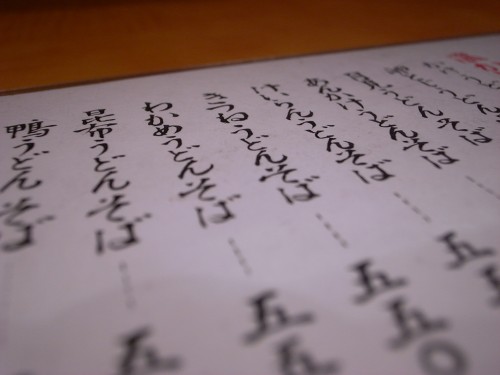 うどんそば
うどんそば
あんかけうどんそば
けいらんうどんそば 五五
きつねうどんそば 五五〇
わかめうどんそば 五五
昆布うどんそば 五
鴨うどんそば